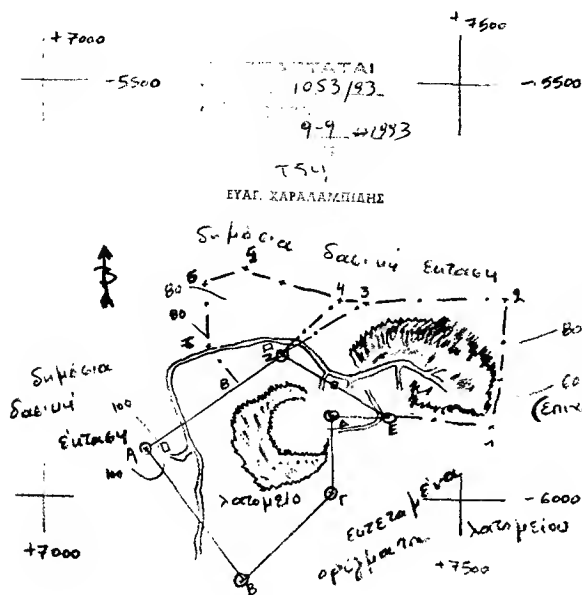 +7000
+7500
-5500
-5500
1053/93
9-9-1993
ΕΥΑΓ. ΧΑΡΑΛΑΜΠΙΔΗΣ
δημόσια δασική έκταση
5
6
80
4
3
2
80
80
Β
Ζ
Θ
60
δημόσια
δασική
έκταση
100
Α
100
Δ
Ε
1
λατομείο
Γ
εκτεταμένα
ορύγματα
λατομείου
-6000
+7000
+7500
Β